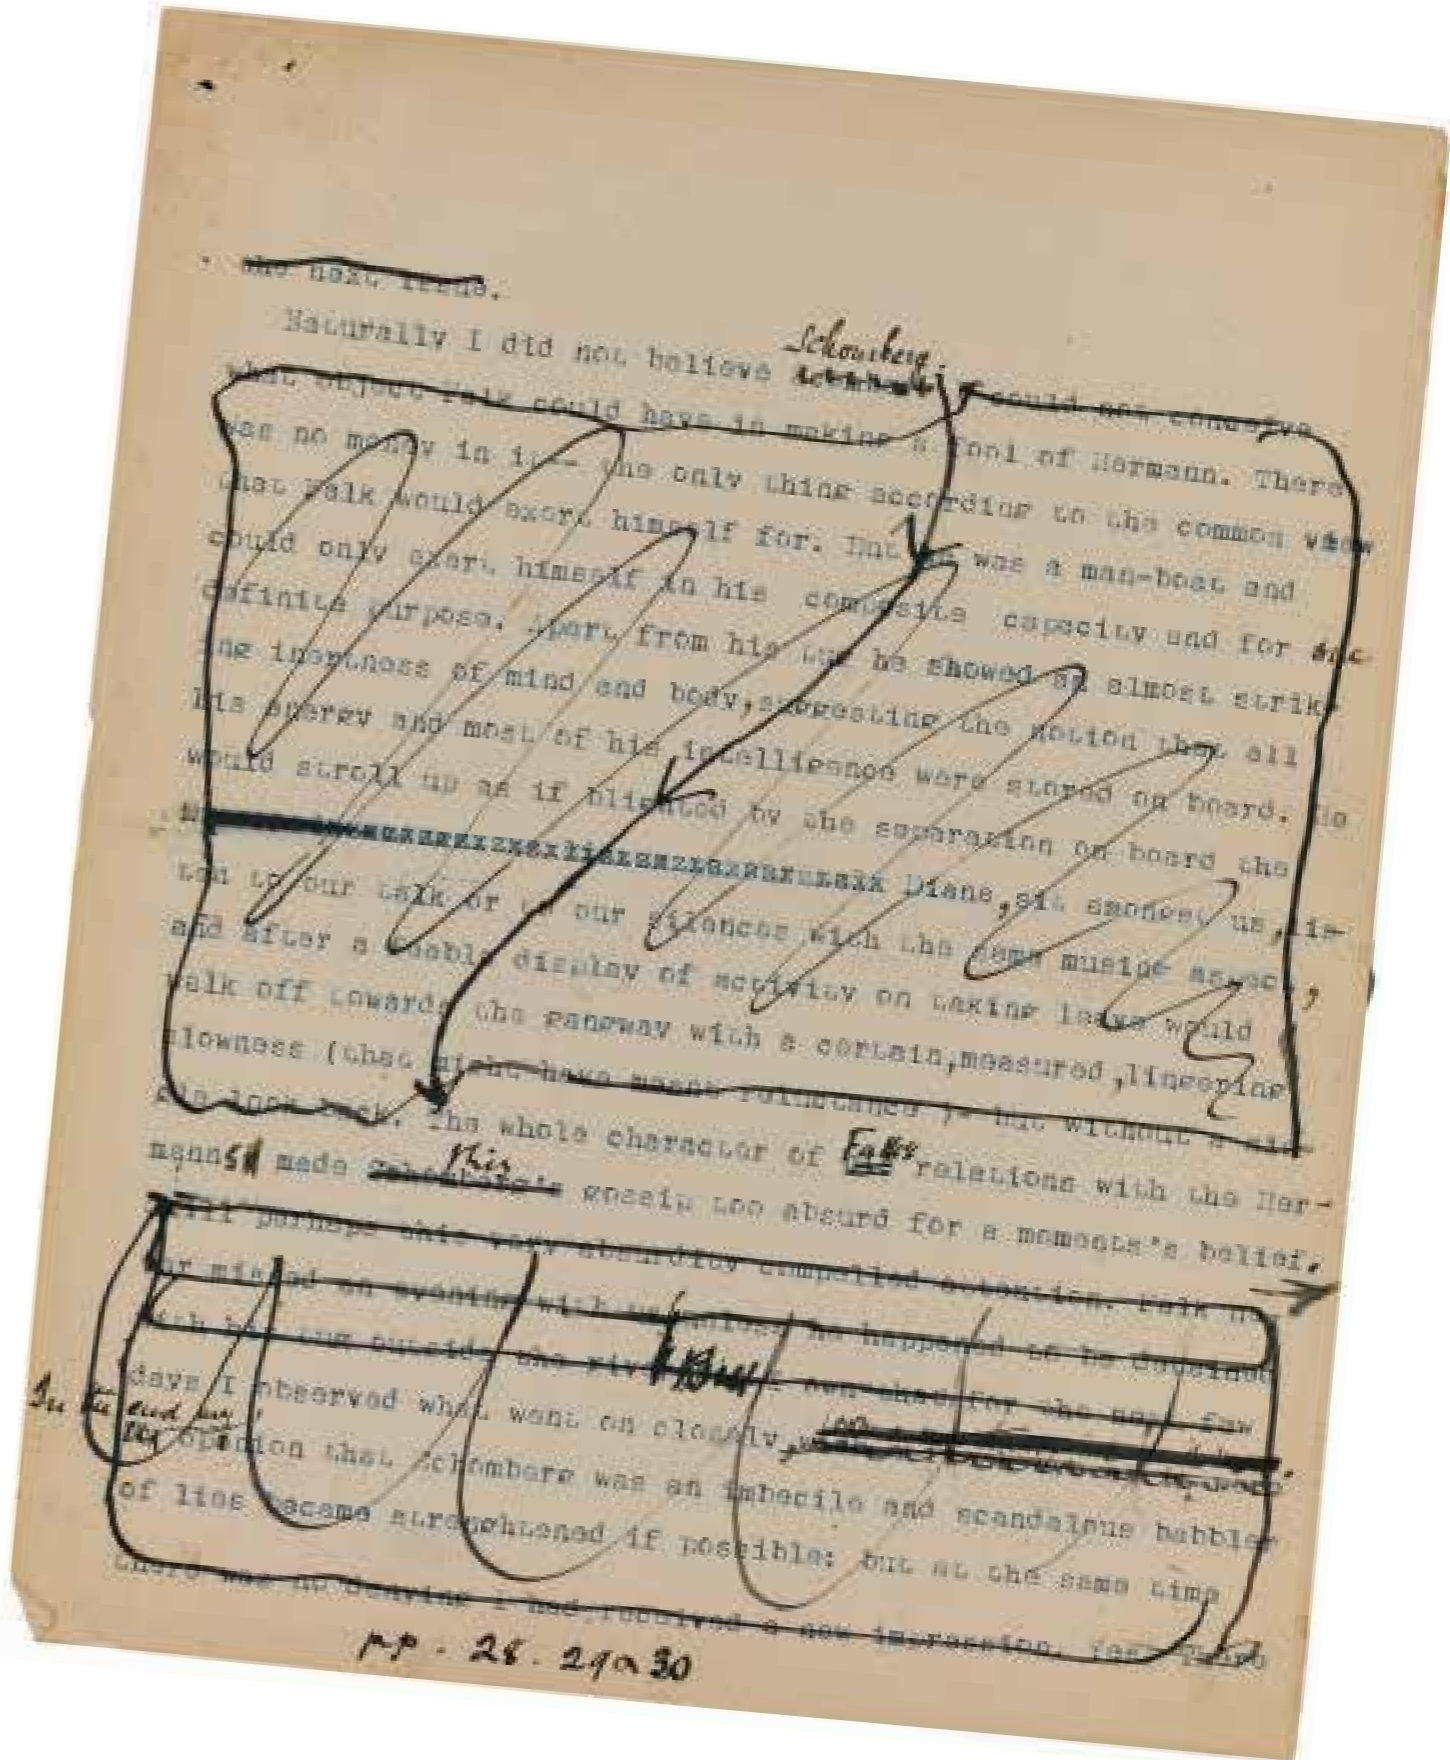 the next issue.
Schomberg.
Naturally I did not believe I could not conceive
what object Falk could have in making a fool of Hermann. There
was no money in it-- the only thing according to the common view
that Falk would exert himself for. But he was a man-boat and
could only exert himself in his composite capacity and for
definite purpose. Apart from his tug he showed an almost strik-
ing inertness of mind and body,suggesting the notion that all
his energy and most of his intelligence were stored on board. He
would stroll up as if blighted by the separation on board the
Diana,sit amongst us,lis-
ten to our talk or to our silences with the same musing aspect,
and after a feeble display of activity on taking leave would
walk off towards the gangway with a certain,measured,lingering
slowness (that might have meant reluctance )- but without a sin-
gle look back. The whole character of Falk's relations with the Her-
this
manns made Schomberg's gossip too absurd for a moments's belief.
Still perhaps this very absurdity compelled attention. Falk ne-
ver missed an evening with us unless he happened to be detained
with his tug outside the But for the next few
days I observed what went on closely,
In the end my
opinion that Schomberg was an imbecile and scandalous babbler
of lies became strenghtened if possible: but at the same time
there was no denying I had received a new impression.
pp. 28. 29 a 30